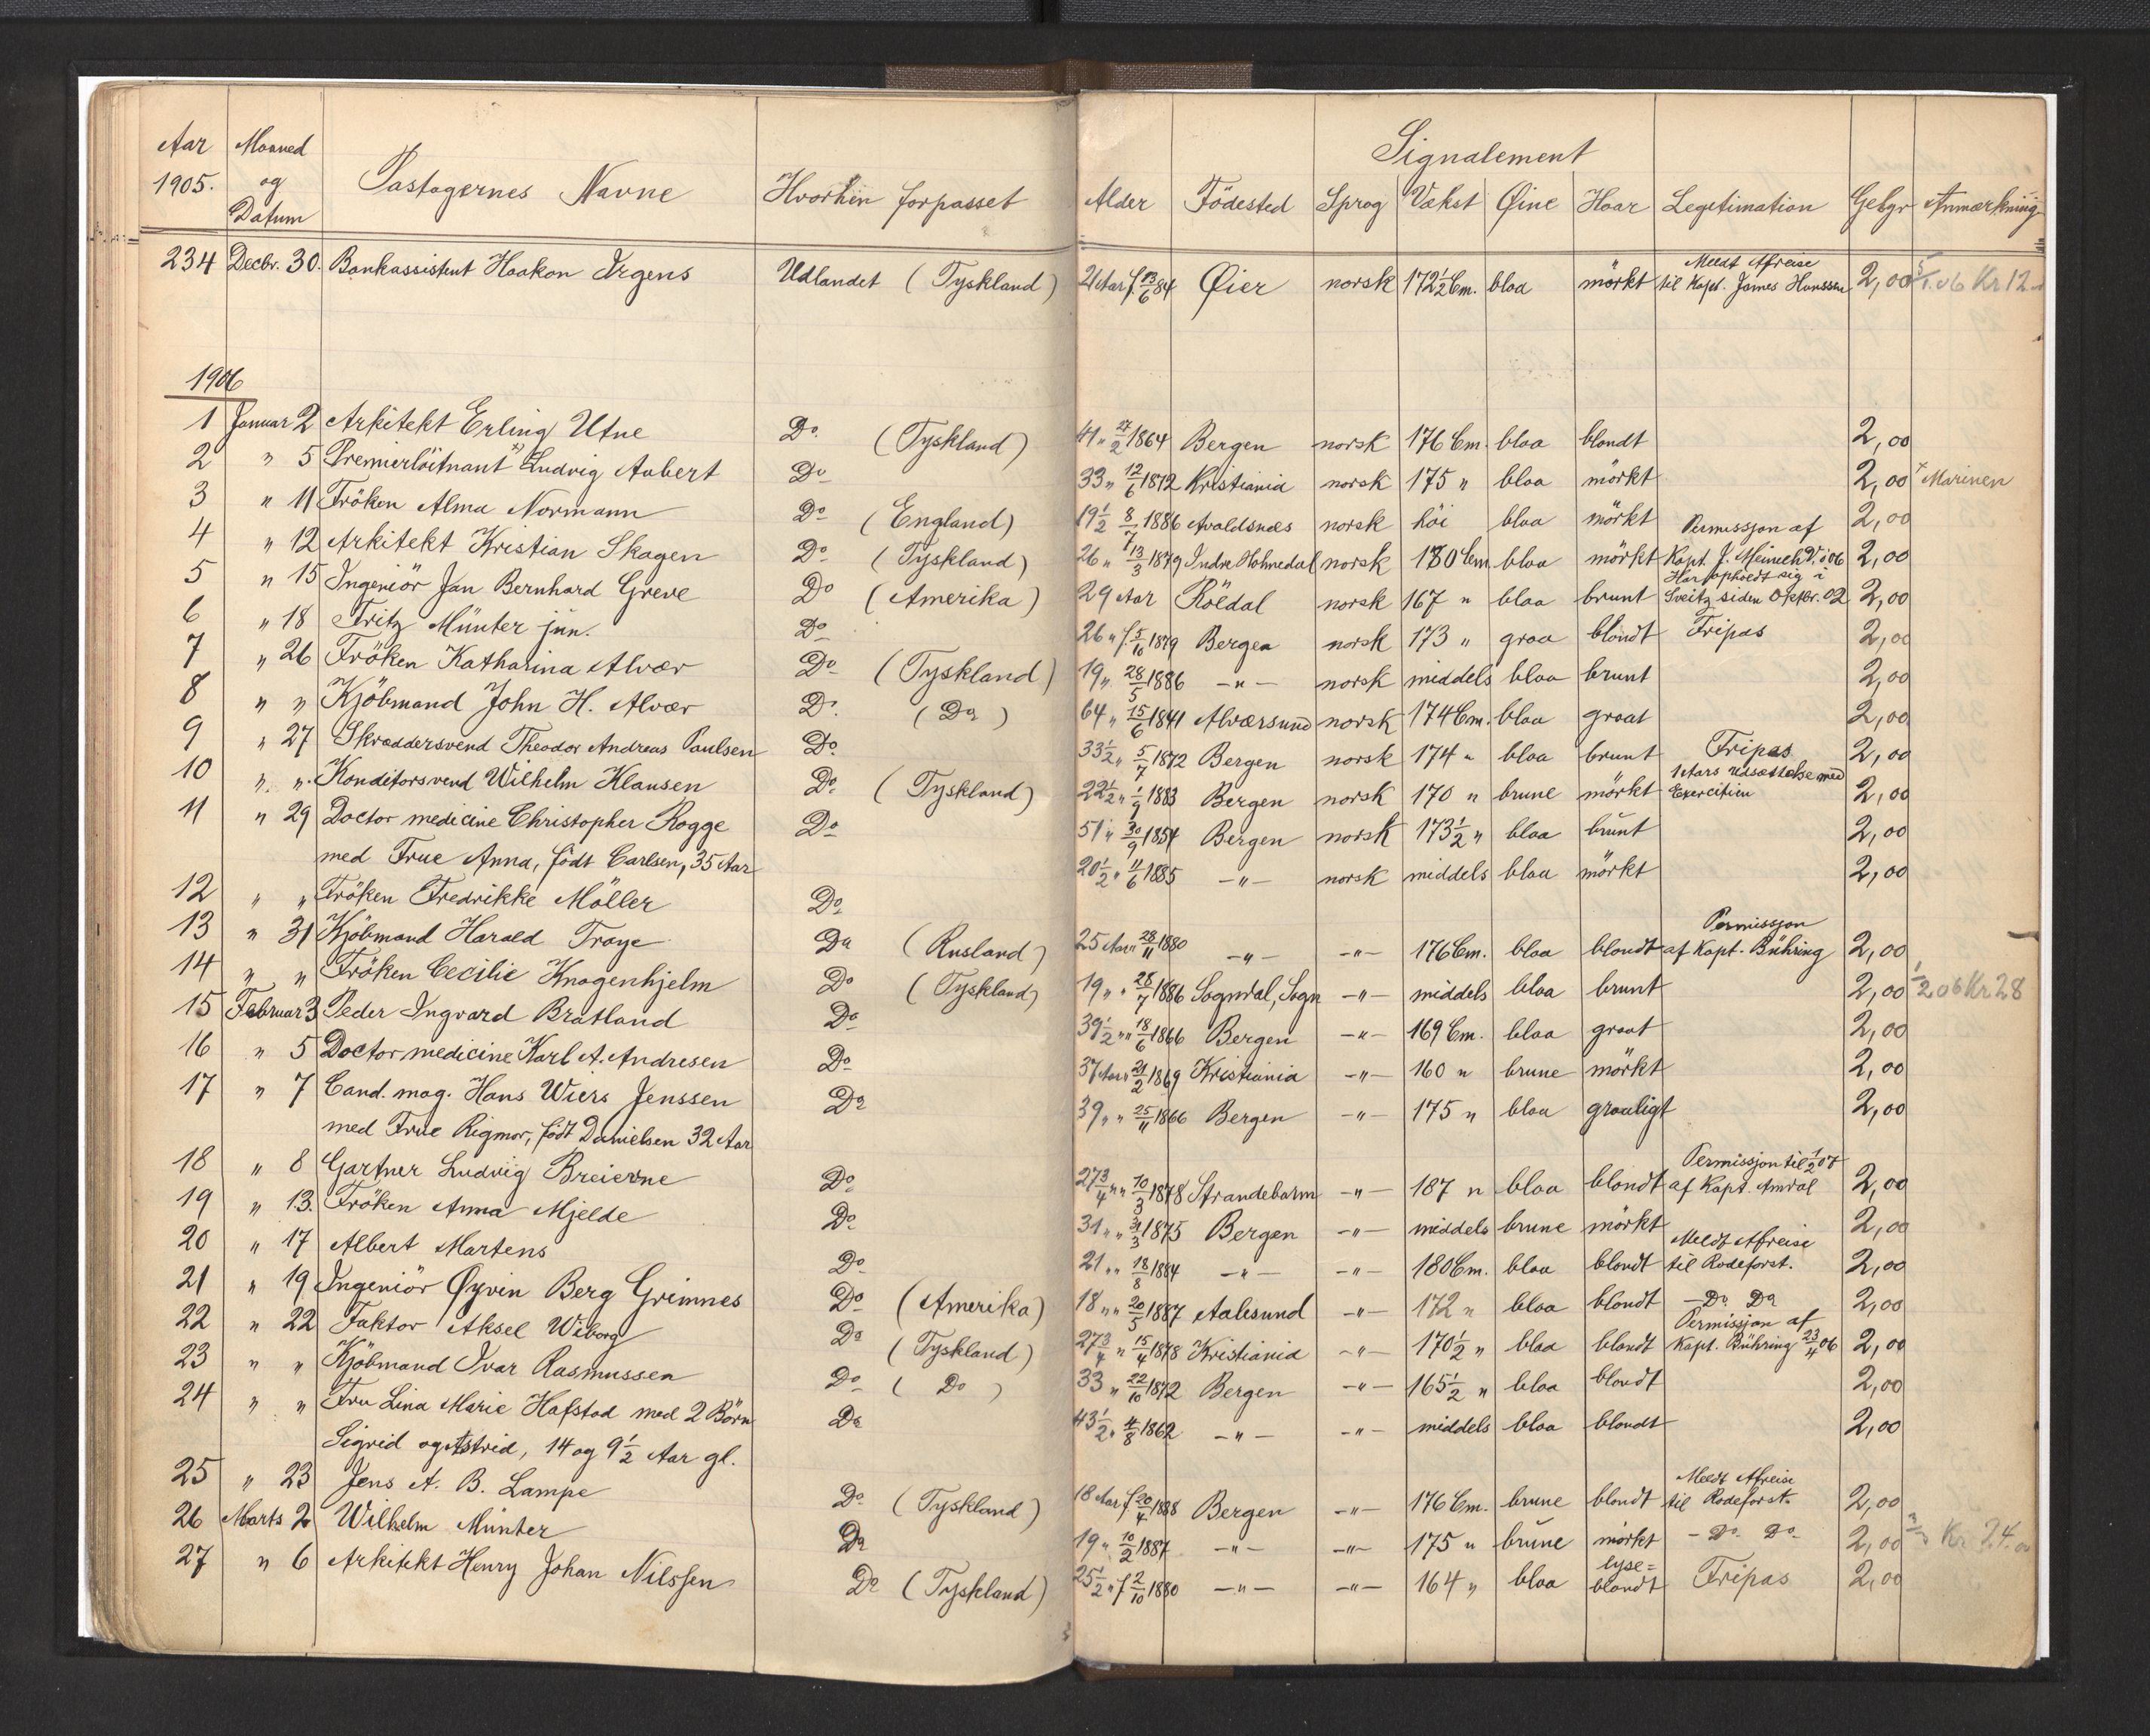 Signalement
Aar 1905. Maaned og Datum Pastagernes Navne Hvorhen forpasset Alder Födested Sprog Vækst Øine Haar Legitimation Gebyr Anmærkning
234 Decbr. 30. Bankassistent Haakon Irgens Udlandet (Tyskland) 21 Aar f. 13/6 84 Øier norsk 172 1/2 Cm. blaa mörkt Meldt Afreise til Kapt. James Hanssen 2,00 5/1.06 Kr 12
1906
1 Januar 2 Arkitekt Erling Utne Do. (Tyskland) 41 " 27/2 1864 Bergen norsk 176 Cm. blaa blondt 2,00
2 " 5 Premierlöitnant Ludvig Aubert Do 33 " 12/6 1872 Kristiania norsk 175 " blaa mörkt 2,00 Marinen
3 " 11 Fröken Alma Normann Do (England) 19 1/2 8/7 1886 Avaldsnæs norsk höi blaa mörkt 2,00
4 " 12 Arkitekt Kristian Skagen Do (Tyskland) 26 " 13/3 1879 Indre Holmedal norsk 180 Cm blaa mörkt Permissjon af Kapt. J. Meinich 2,00
5 " 15 Ingeniör Jan Bernhard Greve Do (Amerika) 29 Aar Röldal norsk 167 " blaa brunt Har opholdt sig i Sveitz siden Oktbr. 02 2,00
6 " 18 Fritz Münter jun. Do 26 " f. 5/10 1879 Bergen norsk 173 " graa blondt Fripas 2,00
7 " 26 Fröken Katharina Alvær Do (Tyskland) 19 " 28/5 1886 -"- norsk middels blaa brunt 2,00
8 " " Kjöbmand John H. Alvær Do. (Do) 64 " 15/6 1841 Alværsund norsk 174 Cm. blaa graat 2,00
9 " 27 Skræddersvend Theodor Andreas Paulsen Do. 33 1/2 " 5/7 1872 Bergen norsk 174 " blaa brunt Fripas 2,00
10 " " Konditorsvend Wilhelm Klausen Do. (Tyskland) 22 1/2 " 1/9 1883 Bergen norsk 170 " brune mörkt 1 Aars Udsættelse med Exercitien 2,00
11 " 29 Doctor medicine Christopher Rogge Do 51 " 30/9 1854 Bergen norsk 173 1/2 " blaa brunt 2,00
med Frue Anna, födt Carlsen, 35 Aar
12 " " Fröken Fredrikke Möller Do. 20 1/2 " 11/6 1885 -"- norsk middels blaa mörkt 2,00
13 " 31 Kjöbmand Harald Troye Do (Rusland) 25 Aar " 28/11 1880 -"- -"- 176 Cm. blaa blondt Permissjon af Kapt. Bühring 2,00
14 " " Fröken Cecilie Knagenhjelm Do (Tyskland) 19 " " 28/7 1886 Sogndal, Sogn -"- middels blaa brunt 2,00 1/2 06 Kr 28
15 Februar 3 Peder Ingvard Bratland Do 39 1/2 " " 18/6 1866 Bergen -"- 169 Cm. blaa graat 2,00
16 " 5 Doctor medicine Karl A. Andresen Do 37 Aar " 21/2 1869 Kristiania -"- 160 " brune mörkt 2,00
17 " 7 Cand. mag. Hans Wiers Jenssen Do 39 " " 25/11 1866 Bergen -"- 175 " blaa graaligt 2,00
med Frue Rigmor, födt Danielsen 32 Aar
18 " 8 Gartner Ludvig Breierne Do. 27 3/4 " " 10/3 1878 Strandebarm -"- 187 " blaa blondt Permissjon til 1/2 07 af Kapt. Amdal 2,00
19 " 13. Fröken Anna Mjelde Do. 31 " " 31/3 1875 Bergen -"- middels brune mörkt 2,00
20 " 17 Albert Martens Do 21 " " 18/8 1884 -"- -"- 180 Cm. blaa blondt Meldt Afreise til Rodeforst. 2,00
21 " 19 Ingeniör Øyvin Berg Grimnes Do (Amerika) 18 " " 20/5 1887 Aalesund -"- 172 " blaa blondt - Do Do 2,00
22 " 22 Faktor Aksel Wiborg Do (Tyskland) 27 3/4 " 15/4 1878 Kristiania -"- 170 1/2 " blaa blondt Permissjon af Kapt. Bühring 23/4 06 2,00
23 " " Kjöbmand Ivar Rasmussen Do (Do) 33 " 22/10 1872 Bergen -"- 165 1/2 " blaa blondt 2,00
24 " " Fru Lina Marie Hafstad med 2 Börn Do 43 1/2 " 4/8 1862 -"- -"- middels blaa blondt 2,00
Sigrid og Astrid, 14 og 9 1/2 Aar gl.
25 " 23 Jens A. B. Lampe Do (Tyskland) 18 Aar f 20/4 1888 Bergen -"- 176 Cm. brune blondt Meldt Afreise til Rodeforst. 2,00
26 Marts 2 Wilhelm Münter Do 19 " 10/2 1887 -"- -"- 175 " brune mörkt - Do. Do. 2,00
27 " 6 Arkitekt Henry Johan Nilssen Do (Tyskland) 25 1/2 " f 2/10 1880 -"- -"- 164 " blaa lyse= blondt Fripas 2,00